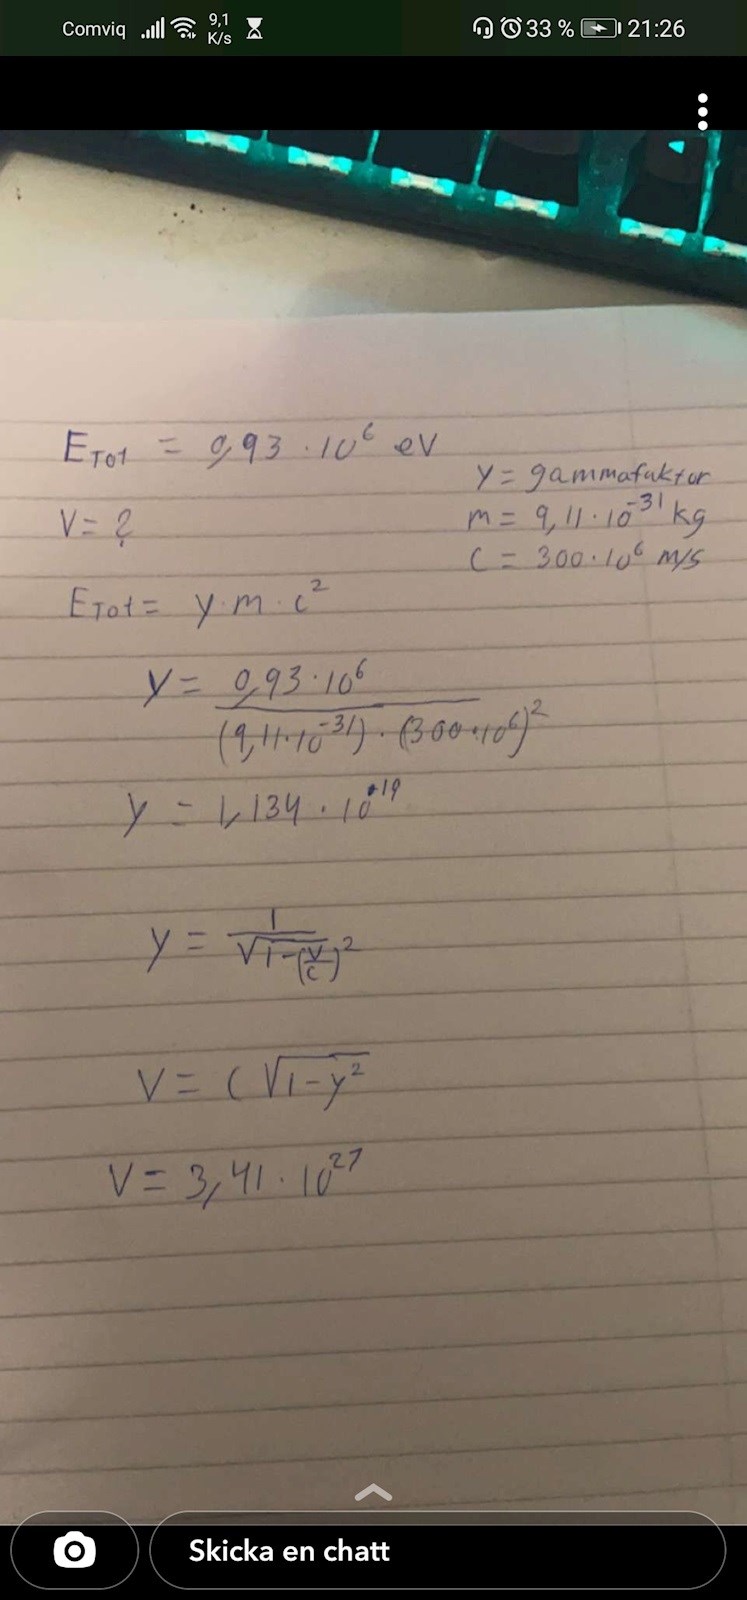 Comviq 9,1 K/s 33 % 21:26
E_Tot = 0,93 · 10^6 eV
y = gammafaktor
V = ?
m = 9,11 · 10^-31 kg
C = 300 · 10^6 m/s
E_Tot = y · m · c^2
y = 0,93 · 10^6
(9,11 · 10^-31) · (300 · 10^6)^2
y = 1,134 · 10^19
y = 1
√1-(V/C)^2
V = C √1-y^2
V = 3,41 · 10^27
Skicka en chatt